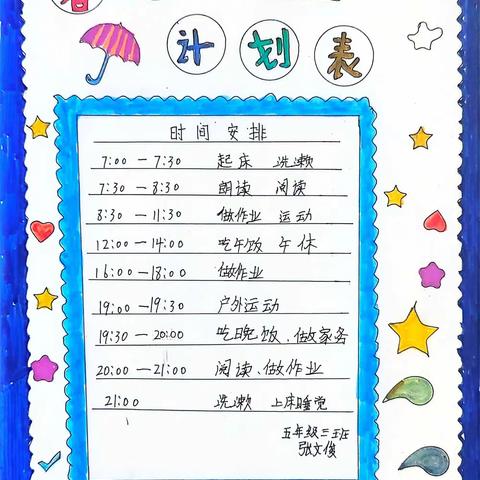 计划表
时间安排
7:00 — 7:30 起床 洗漱
7:30 — 8:30 朗读 阅读
8:30 — 11:30 做作业 运动
12:00 — 14:00 吃午饭 午休
16:00 — 18:00 做作业
19:00 — 19:30 户外运动
19:30 — 20:00 吃晚饭、做家务
20:00 — 21:00 阅读、做作业
21:00 洗漱 上床睡觉
五年级三班
张文俊